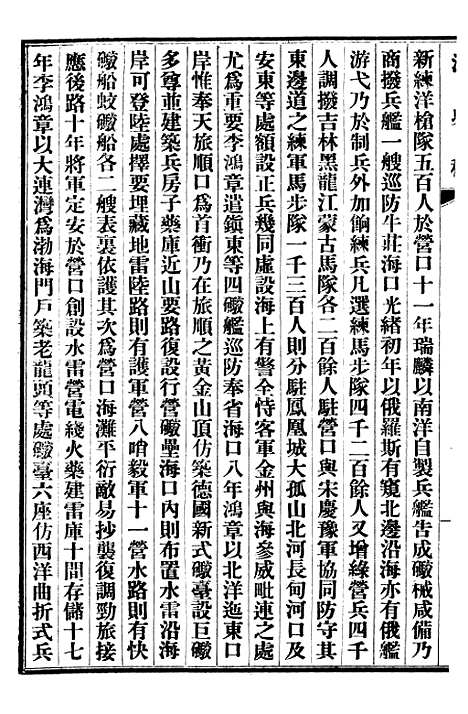 新練洋槍隊五百人於營口十一年瑞麟以南洋自製兵艦告成礮械咸備乃
商撥兵艦一艘巡防牛莊海口光緒初年以俄羅斯有窺北邊沿海亦有俄艦
游弋乃於制兵外加餉練兵凡選練馬步隊四千二百餘人又增綠營兵四千
人調撥吉林黑龍江蒙古馬隊各二百餘人駐營口與宋慶豫軍協同防守其
東邊道之練軍馬步隊一千三百人則分駐鳳凰城大孤山北河長甸河口及
安東等處額設正兵幾同虛設海上有警全恃客軍金州與海參威毗連之處
尤爲重要李鴻章遣鎭東等四礮艦巡防奉省海口八年鴻章以北洋迤東口
岸惟奉天旅順口爲首衝乃在旅順之黃金山頂仿築德國新式礮臺設巨礮
多尊並建築兵房子藥庫近山要路復設行營礮壘海口內則布置水雷沿海
岸可登陸處擇要埋藏地雷陸路則有護軍營八哨毅軍十一營水路則有快
礮船蚊礮船各二艘表裏依護其次爲營口海灘平衍敵易抄襲復調勁旅接
應後路十年將軍定安於營口創設水雷營電綫火藥建雷庫十間存儲十七
年李鴻章以大連灣爲渤海門戶築老龍頭等處礮臺六座仿西洋曲折式兵